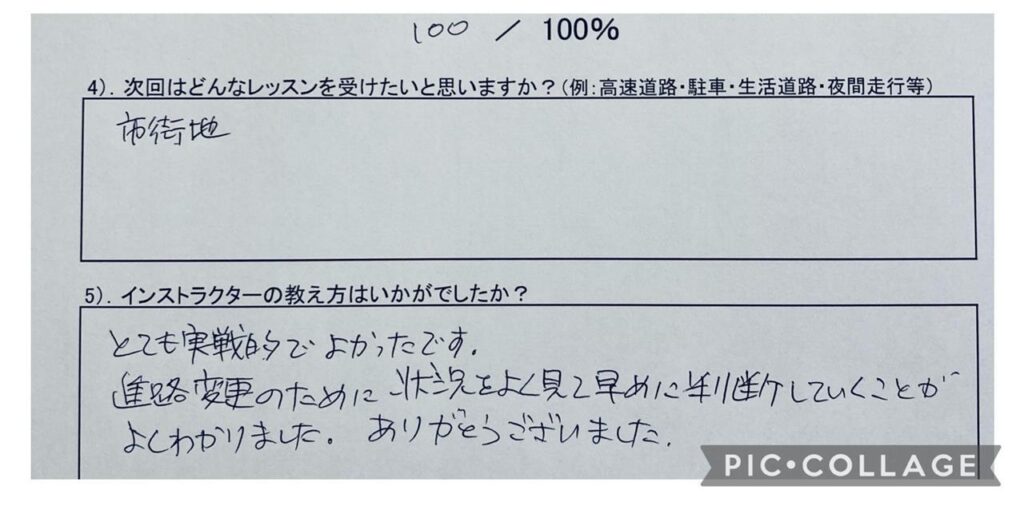 100 / 100%
4). 次回はどんなレッスンを受けたいと思いますか？(例:高速道路・駐車・生活道路・夜間走行等)
市街地
5). インストラクターの教え方はいかがでしたか？
とても実戦的でよかったです.
進路変更のために状況をよく見て早めに判断していくことが
よくわかりました。ありがとうございました.
PIC•COLLAGE